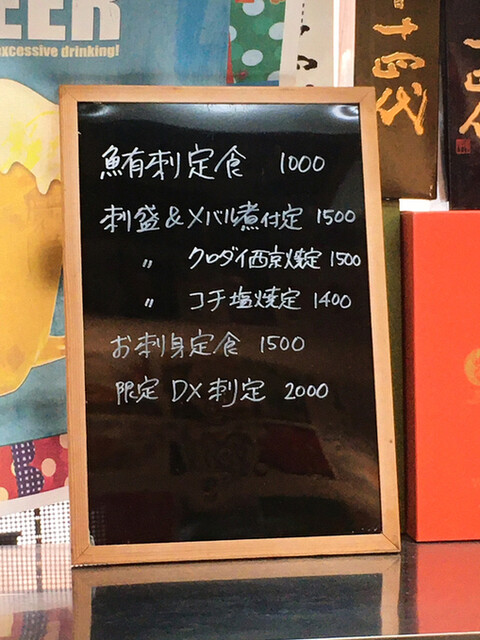 EER
excessive drinking!
十四代
鮪刺定食 1000
刺盛&メバル煮付定 1500
〃 クロダイ西京焼定 1500
〃 コチ塩焼定 1400
お刺身定食 1500
限定 DX刺定 2000